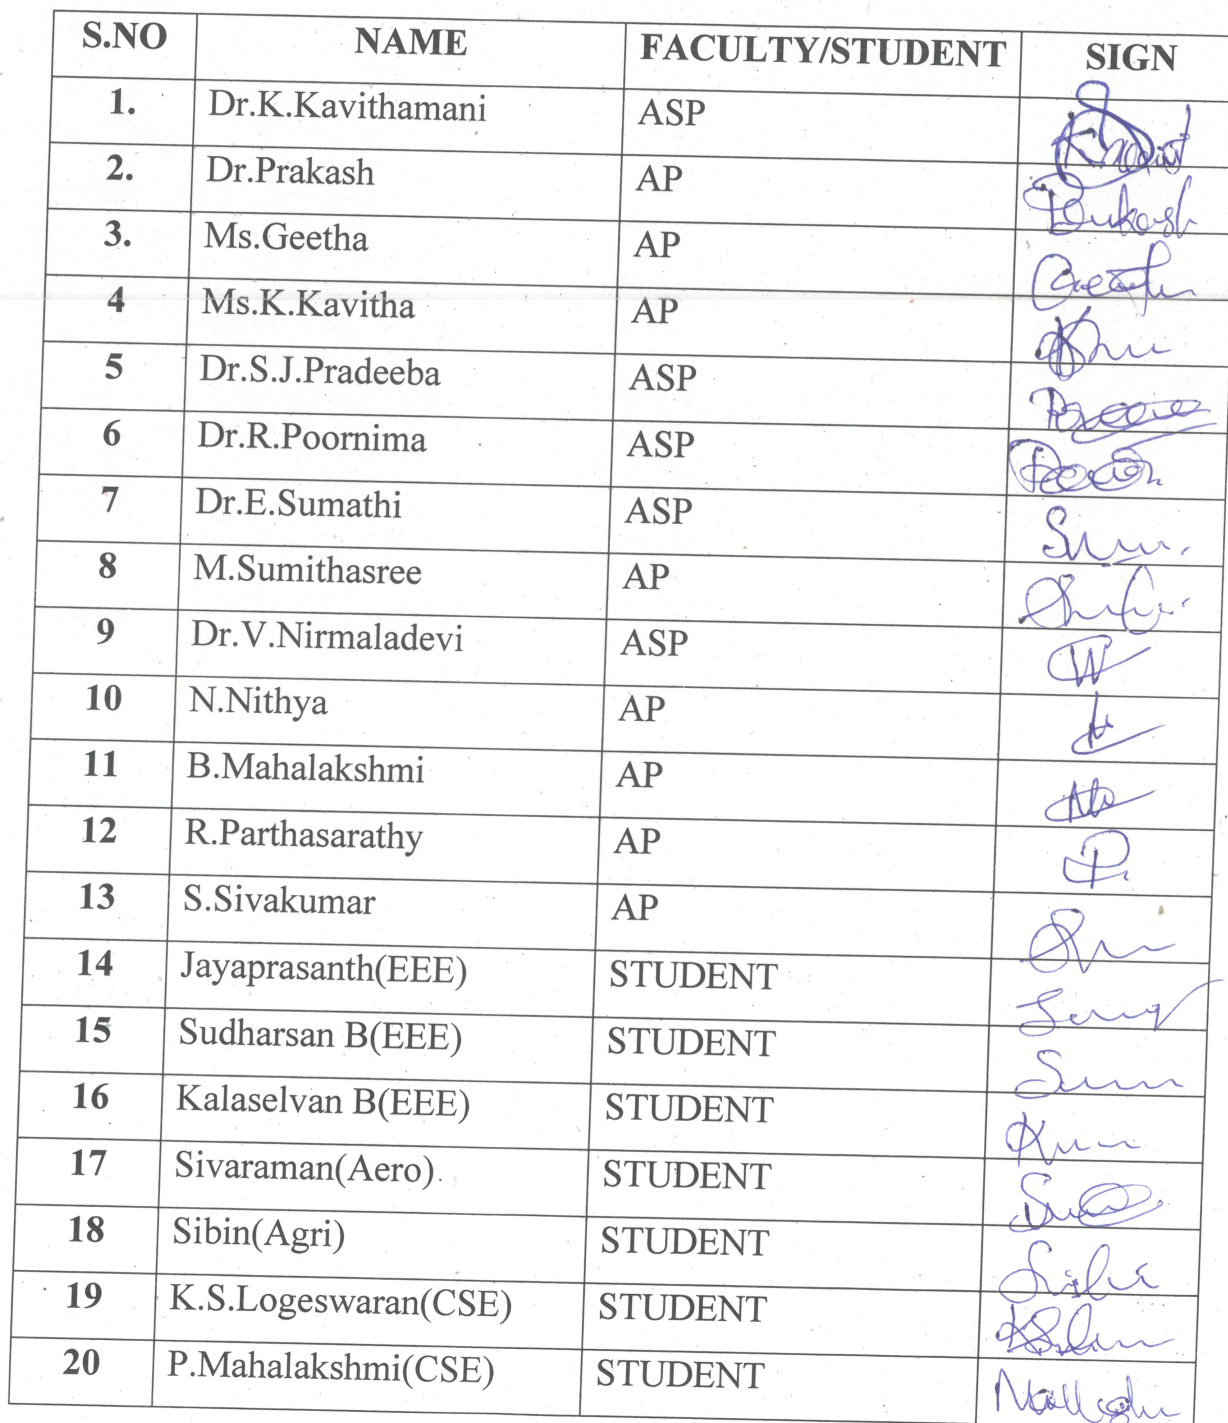 S.NO NAME FACULTY/STUDENT SIGN
1. Dr.K.Kavithamani ASP
2. Dr.Prakash AP
3. Ms.Geetha AP
4 Ms.K.Kavitha AP
5 Dr.S.J.Pradeeba ASP
6 Dr.R.Poornima ASP
7 Dr.E.Sumathi ASP
8 M.Sumithasree AP
9 Dr.V.Nirmaladevi ASP
10 N.Nithya AP
11 B.Mahalakshmi AP
12 R.Parthasarathy AP
13 S.Sivakumar AP
14 Jayaprasanth(EEE) STUDENT
15 Sudharsan B(EEE) STUDENT
16 Kalaselvan B(EEE) STUDENT
17 Sivaraman(Aero) STUDENT
18 Sibin(Agri) STUDENT
19 K.S.Logeswaran(CSE) STUDENT
20 P.Mahalakshmi(CSE) STUDENT